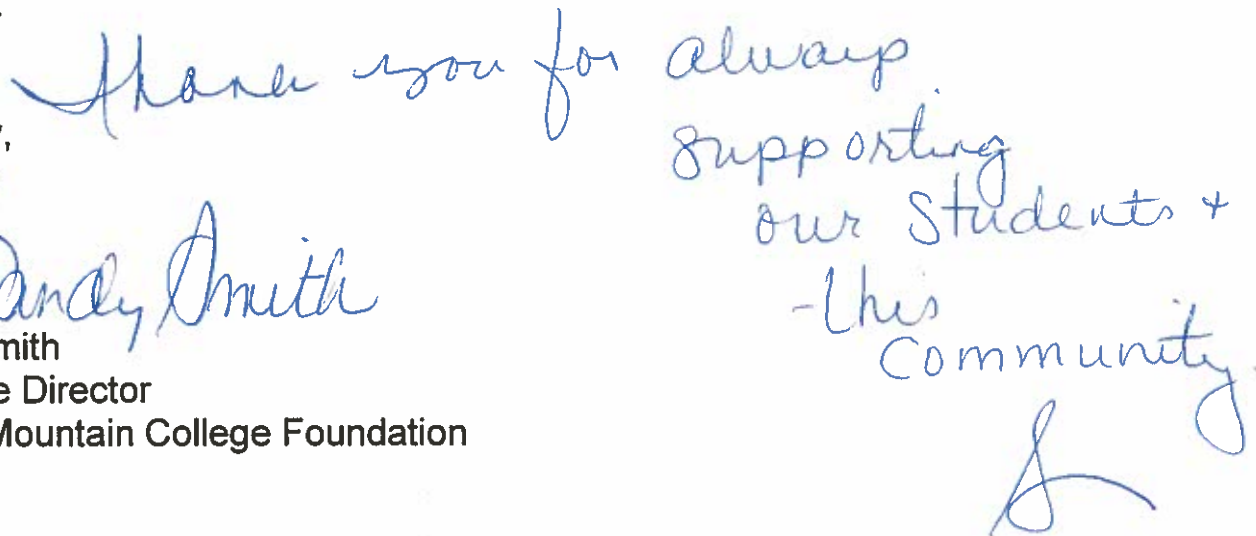 Thank you for always
supporting
our Students +
this
Community.
,
andy Smith
mith
e Director
Mountain College Foundation
S